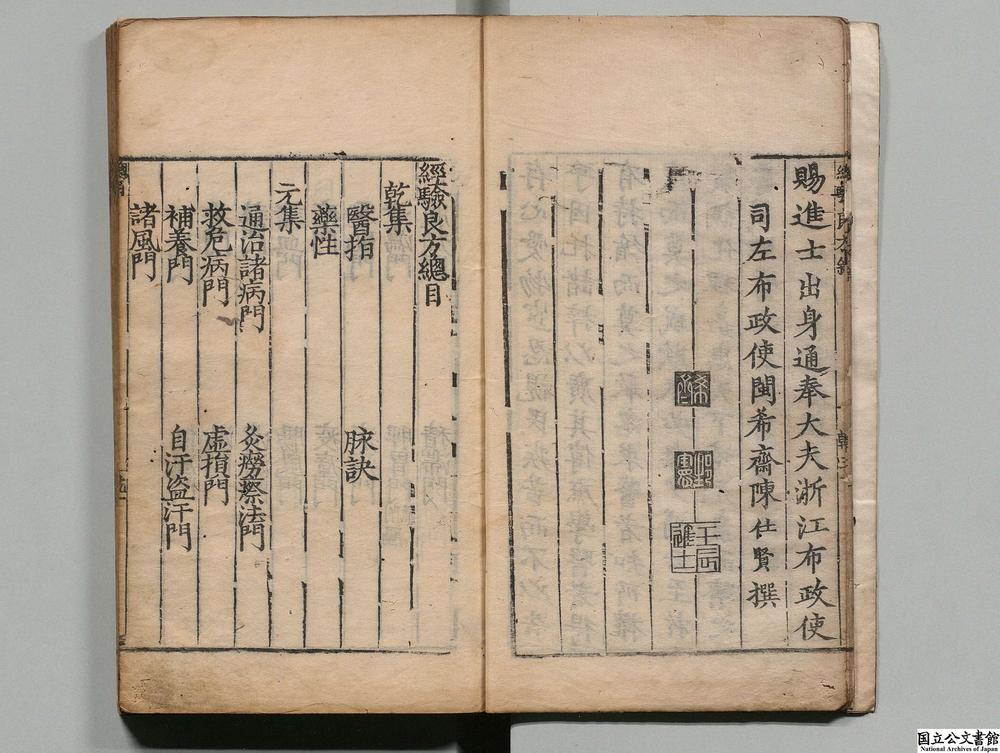 賜進士出身通奉大夫浙江布政使
司左布政使閩希齋陳仕賢撰
希齋
壬辰進士
經驗良方總目
乾集
醫指 脉訣
藥性
元集
通治諸病門 灸癆瘵法門
救危病門 虛損門
補養門 自汗盜汗門
諸風門
国立公文書館
National Archives of Japan